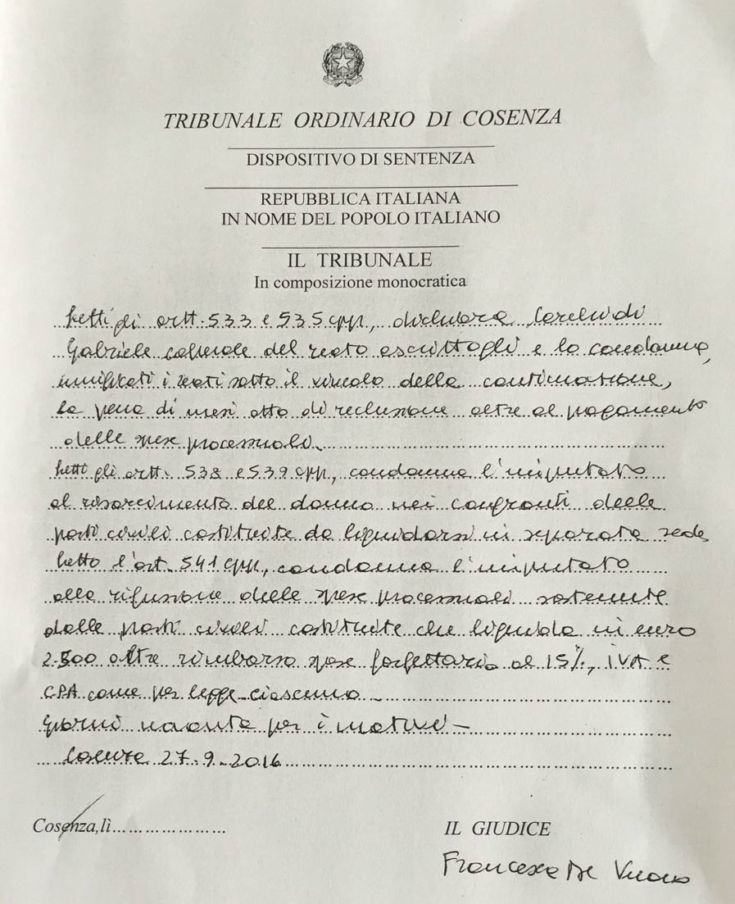 TRIBUNALE ORDINARIO DI COSENZA
DISPOSITIVO DI SENTENZA
REPUBBLICA ITALIANA
IN NOME DEL POPOLO ITALIANO
IL TRIBUNALE
In composizione monocratica
Letti gli artt. 533 e 535 cpp, dichiara
Gabriele colpevole del reato ascrittogli e lo condanna,
unificati i reati sotto il vincolo della continuazione,
la pena di mesi otto di reclusione oltre al pagamento
delle spese processuali.
Letti gli artt. 538 e 539 cpp, condanna l'imputato
al risarcimento del danno nei confronti delle
parti civili costituite da liquidarsi in separata sede
Letto l'art. 541 cpp, condanna l'imputato
alla rifusione delle spese processuali sostenute
dalle parti civili costituite che liquida in euro
2.500 oltre rimborso spese forfettario al 15%, IVA e
CPA come per legge ciascuno
Giorni novanta per i motivi -
Cosenza 27.9.2016
Cosenza, lì....................
IL GIUDICE
Francesca De Vuono